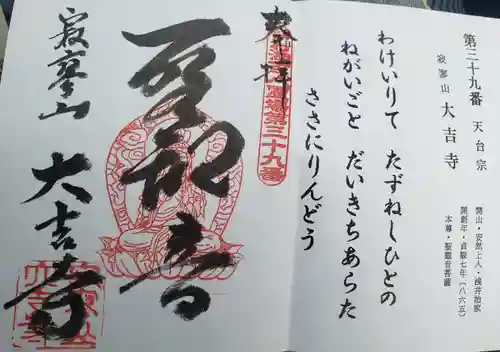 第三十九番 天台宗
寂寥山 大吉寺
開山・安然上人・
開創年・貞観七年(八六五)
本尊・聖観音菩薩
わけいりて たずねしひとの
ねがいごと だいきちあらた
ささにりんどう
奉拝
霊場第三十九番
聖観音
寂寥山
大吉寺